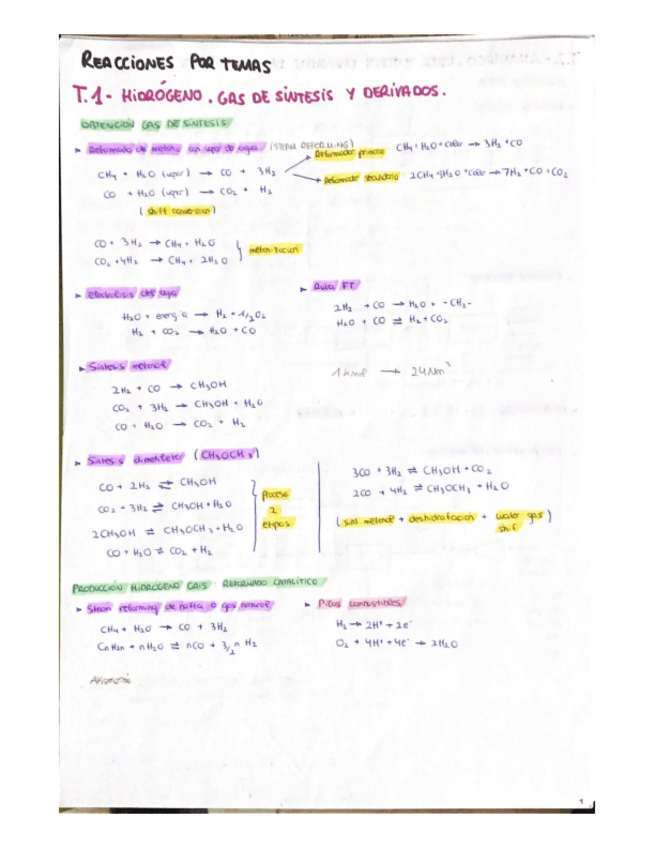 REACCIONES POR TEMAS
T.1- HIDRÓGENO. GAS DE SÍNTESIS Y DERIVADOS.
OBTENCIÓN GAS DE SÍNTESIS
▸ Reformado de metano con vapor de agua (STEAM REFORMING)
Reformador primario CH₄ + H₂O + calor → 3H₂ + CO
CH₄ + H₂O (vapor) → CO + 3H₂
Reformador secundario 2CH₄ + 3H₂O + calor → 7H₂ + CO + CO₂
CO + H₂O (vapor) → CO₂ + H₂
(shift conversion)
CO + 3H₂ → CH₄ + H₂O
CO₂ + 4H₂ → CH₄ + 2H₂O
metanización
▸ Electrólisis del agua
H₂O + energía → H₂ + 1/2O₂
H₂ + CO₂ → H₂O + CO
▸ Ruta FT
2H₂ + CO → H₂O + -CH₂-
H₂O + CO ⇌ H₂ + CO₂
▸ Síntesis metanol
2H₂ + CO → CH₃OH
CO₂ + 3H₂ → CH₃OH + H₂O
CO + H₂O → CO₂ + H₂
1 kmol → 24 Nm³
▸ Síntesis dimetileter (CH₃OCH₃)
CO + 2H₂ ⇌ CH₃OH
CO₂ + 3H₂ ⇌ CH₃OH + H₂O
2CH₃OH ⇌ CH₃OCH₃ + H₂O
CO + H₂O ⇌ CO₂ + H₂
Proceso
2
etapas
3CO + 3H₂ ⇌ CH₃OH + CO₂
2CO + 4H₂ ⇌ CH₃OCH₃ + H₂O
(sint. metanol + deshidratación + water gas
shift)
PRODUCCIÓN HIDRÓGENO GRIS: REFORMADO CATALÍTICO
▸ Steam reforming de nafta o gas natural
CH₄ + H₂O → CO + 3H₂
CnH2n + nH₂O ⇌ nCO + 3/2n H₂
▸ Pilas combustibles
H₂ → 2H⁺ + 2e⁻
O₂ + 4H⁺ + 4e⁻ → 2H₂O
1